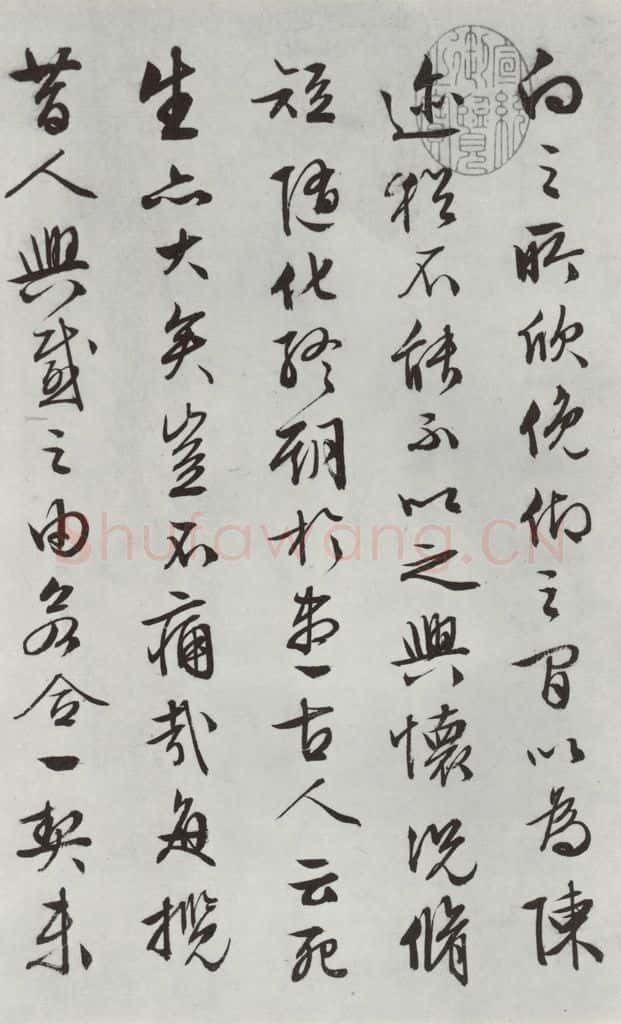 向之所欣俛仰之間以為陳
迹猶不能不以之興懷況脩
短隨化終期於盡古人云死
生亦大矣豈不痛哉每攬
昔人興感之由若合一契未
宣統御覽之寶
shufawang.CN